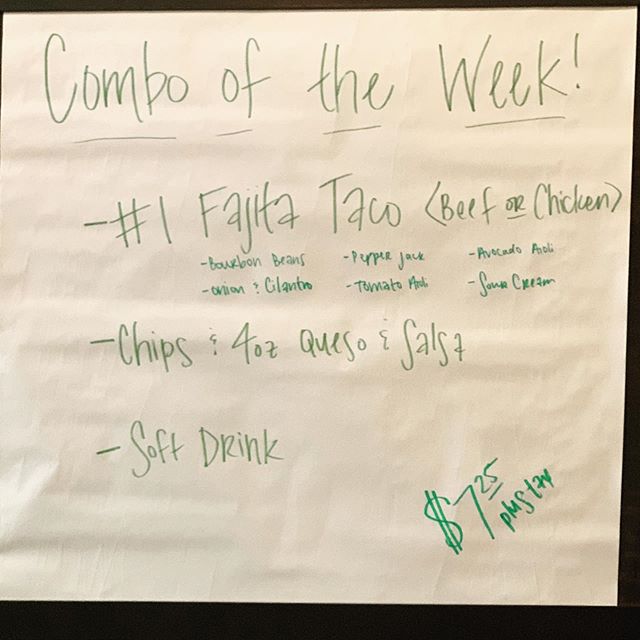 Combo of the Week!
- #1 Fajita Taco (Beef or Chicken)
- Bourbon Beans - Pepper Jack - Avocado Aioli
- onion & Cilantro - Tomato Aioli - Sour Cream
- Chips & 4oz Queso & Salsa
- Soft Drink
$7.25
plus tax